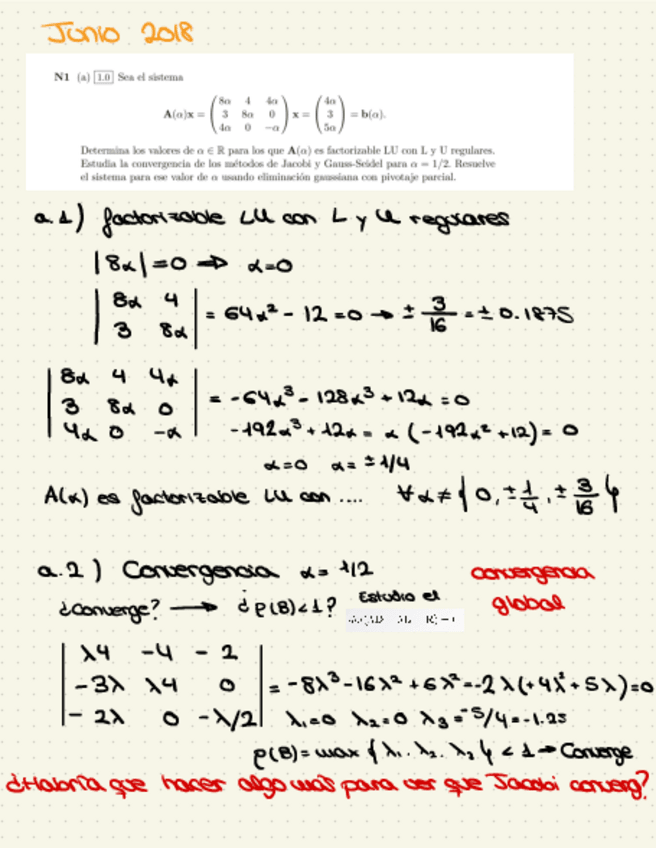 Junio 2018
N1 (a) 1.0 Sea el sistema
A(α)x = ( 8α 4 4α
3 8α 0
4α 0 −α ) x = ( 4α
3
5α ) = b(α).
Determina los valores de α ∈ ℝ para los que A(α) es factorizable LU con L y U regulares.
Estudia la convergencia de los métodos de Jacobi y Gauss-Seidel para α = 1/2. Resuelve
el sistema para ese valor de α usando eliminación gaussiana con pivotaje parcial.
a.1) factorizable LU con L y U regulares
|8α| = 0 ⇒ α=0
| 8α 4
3 8α | = 64α² - 12 = 0 → ± 3/16 = ± 0.1875
| 8α 4 4α
3 8α 0
4α 0 -α | = -64α³ - 128α³ + 12α = 0
-192α³ + 12α = α (-192α² + 12) = 0
α=0 α= ± 1/4
A(α) es factorizable LU con .... ∀α ≠ {0, ± 1/4, ± 3/16}
a.2) Convergencia α = 1/2
convergencia
global
¿Converge? → ¿ρ(B)<1? Estudio el
| λ4 -4 -2
-3λ λ4 0
-2λ 0 -λ/2 | = -8λ³ - 16λ² + 6λ² = -2λ(+4λ² + 5λ) = 0
λ₁=0 λ₂=0 λ₃= -5/4 = -1.25
ρ(B) = max {λ₁. λ₂. λ₃} < 1 → Converge
¿Habría que hacer algo más para ver que Jacobi converg?